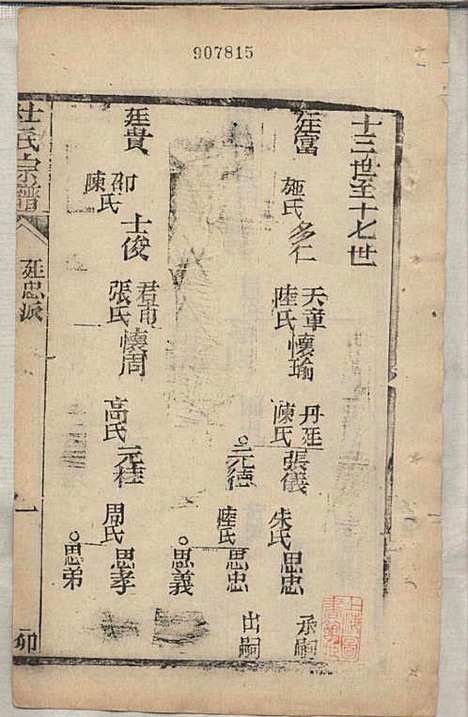 907815
十三世至十七世
廷富 施氏 多仁 天童 陸氏 懷瑜 丹廷 陳氏 張儀 朱氏 思忠 承嗣
元德 陸氏 思忠 出嗣
思義
廷貴 邵氏 陳氏 士俊 君市 張氏 懷周 高氏 元桂 周氏 思孝
思弟
杜氏宗譜 廷忠派 一 卯